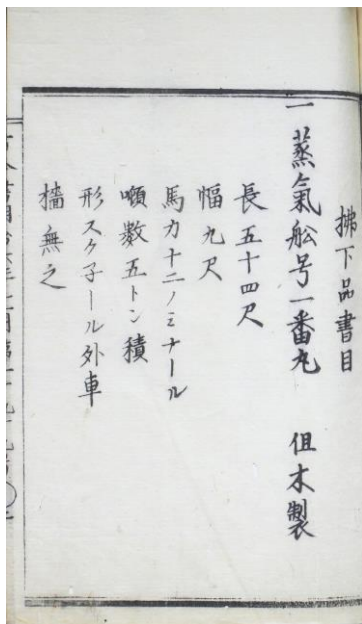 拂下品書目
一 蒸氣舩号一番丸 但木製
長五十四尺
幅九尺
馬力十二ノミナール
噸數五トン積
形スク子ール外車
檣無之